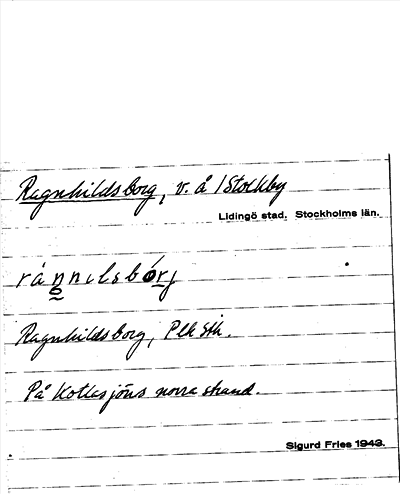 Ragnhildsborg, v. å /Stockby
Lidingö stad. Stockholms län.
rάŋnɩlsbórj
Ragnhildsborg, Plk Sth.
På Kottlasjöns norra strand.
Sigurd Fries 1943.